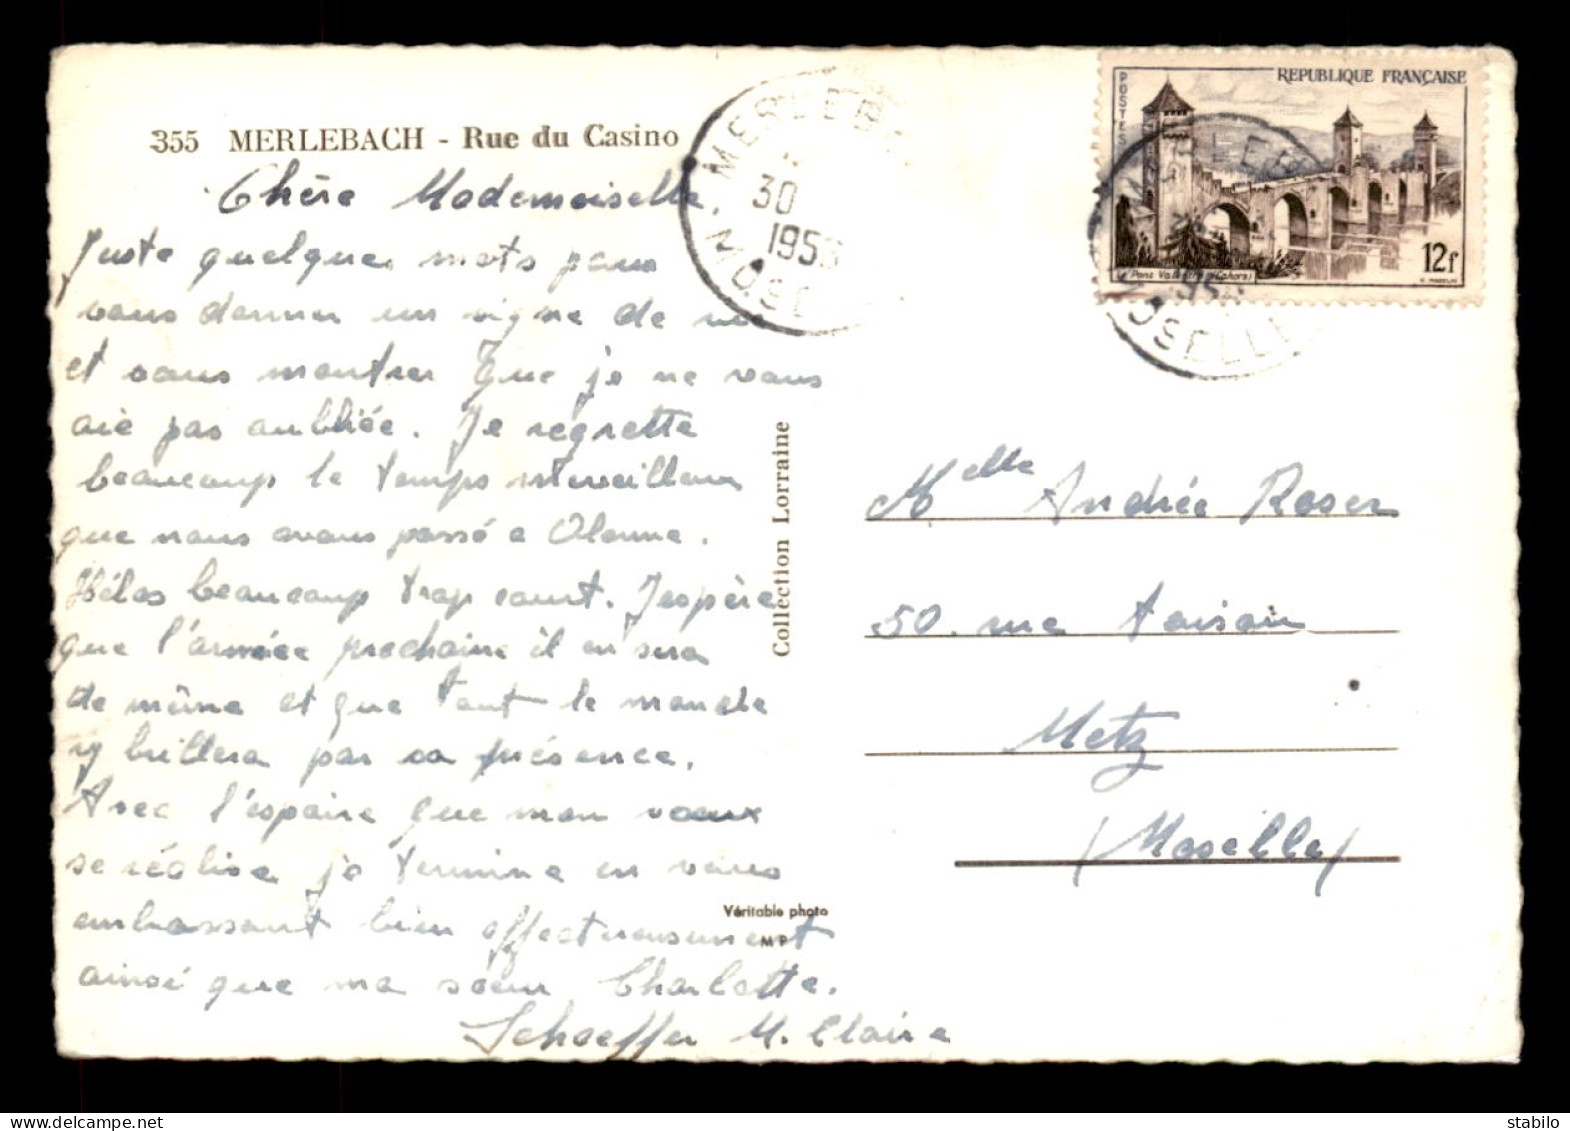 355 MERLEBACH - Rue du Casino
Chère Mademoiselle,
Juste quelques mots pour
vous donner un signe de vie
et vous montrer que je ne vous
aie pas oubliée. Je regrette
beaucoup le temps merveilleux
que nous avons passé a Olonne.
Hélas beaucoup trop court. J'espère
que l'année prochaine il en sera
de même et que tout le monde
y brillera par sa présence.
Avec l'espoire que mon voeux
se réalise je termine en vous
embrassant bien affectueusement
ainsi que ma soeur Charlotte.
Schaeffer M. Claire
Véritable photo
M P
Collection Lorraine
MERLEB
30
1953
MOSE
POSTES
REPUBLIQUE FRANÇAISE
12f
Pont Valentré (Cahors)
MERLEB
OSELLE
Melle Andrée Roser
50. rue
Metz
(Moselle)
stabilo